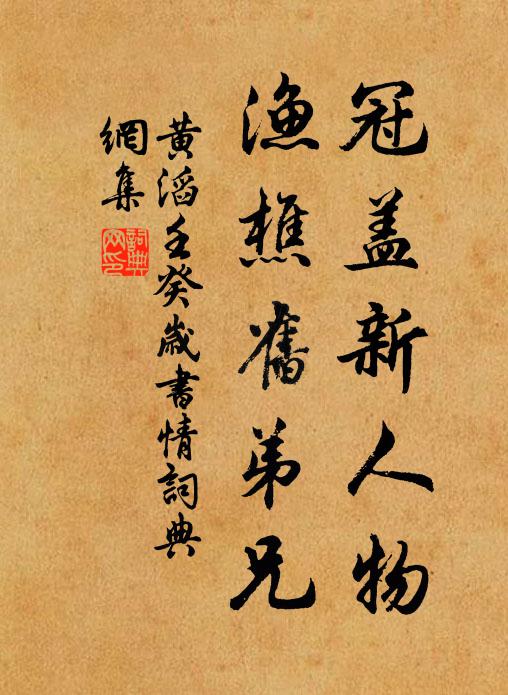 冠盖新人物
渔樵舊弟兄
黄滔壬癸歲書情詞典
網集
詞典網印